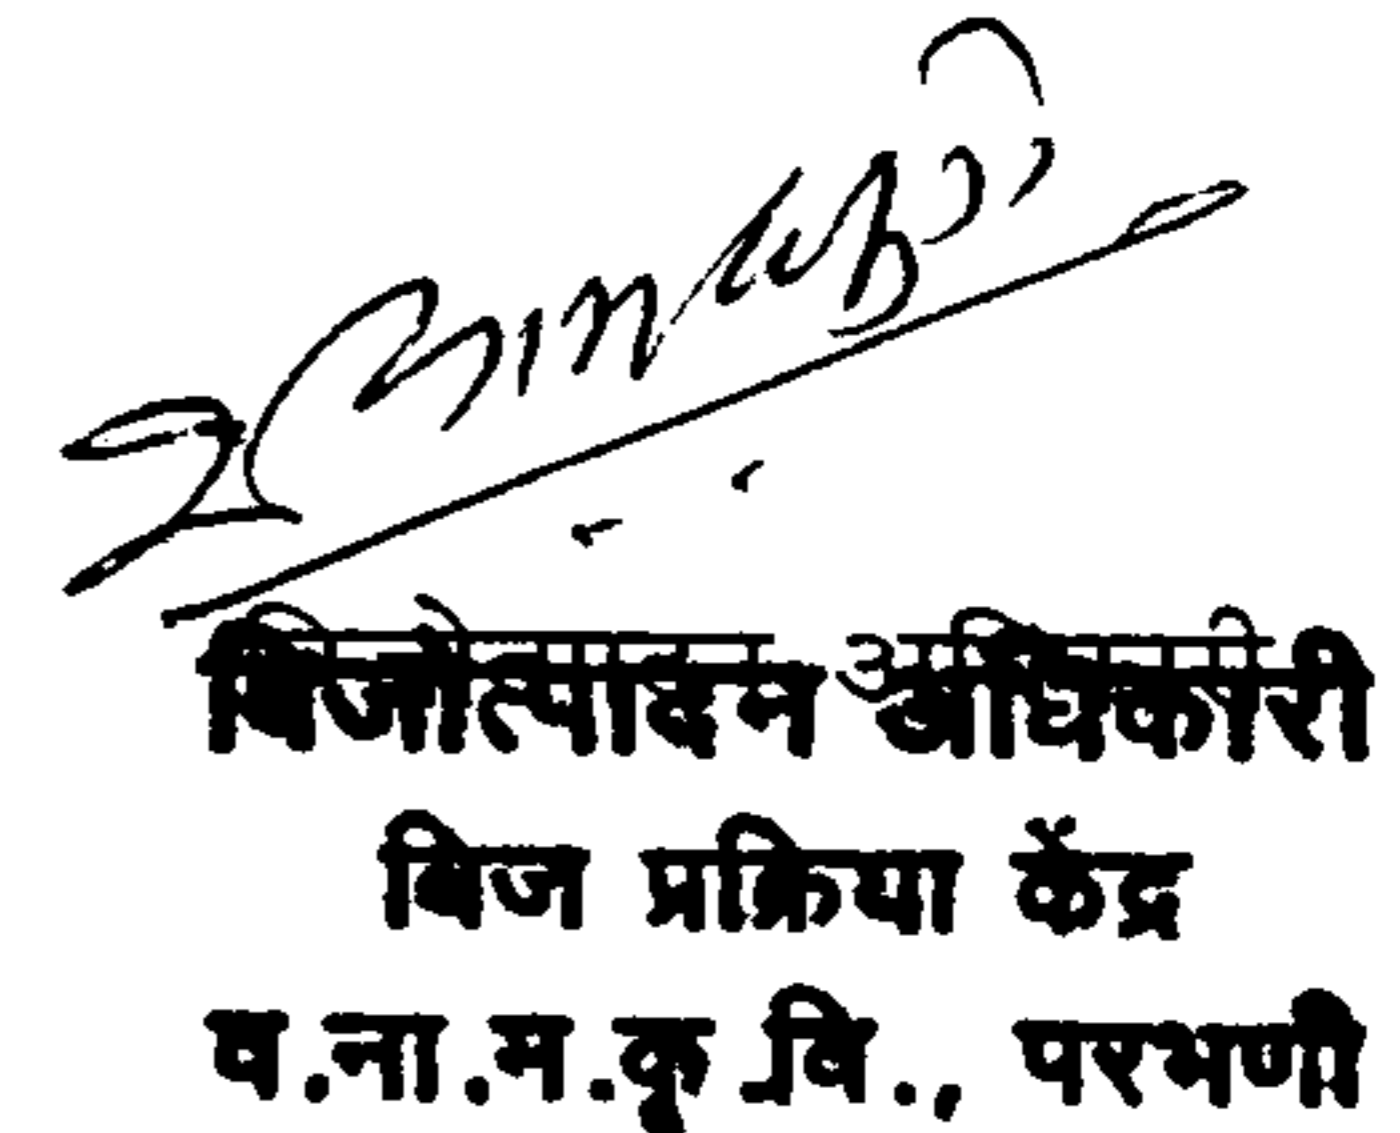 बिजोत्पादन अधिकारी
बिज प्रक्रिया केंद्र
व.ना.म.कृ.वि., परभणी